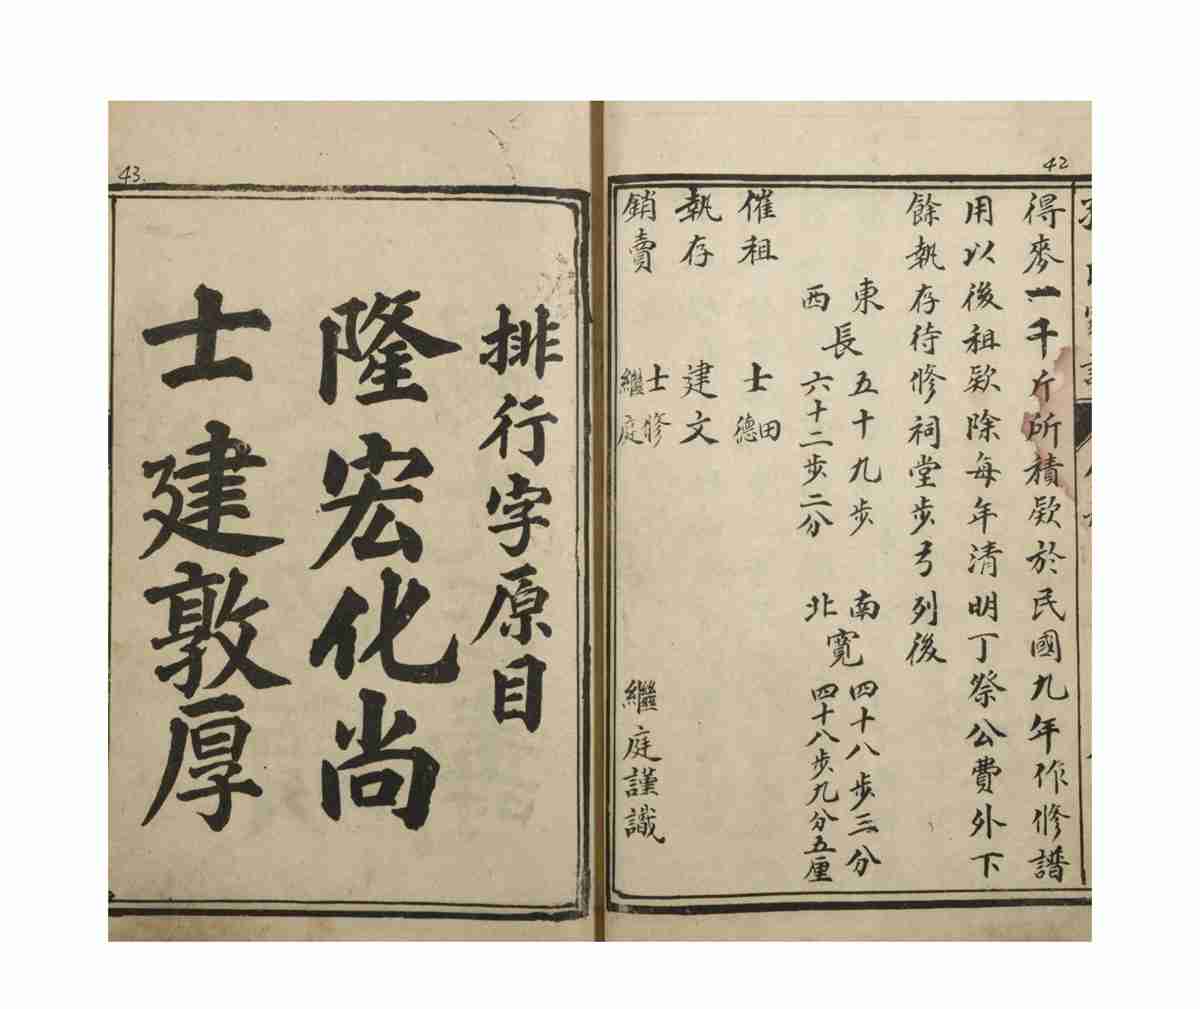 42
得麥一千斤所積欵於民國九年作修譜
用以後租欵除每年清明丁祭公費外下
餘執存待修祠堂步弓列後
東 長 五十九步 南 寬 四十八步三分
西 六十二步二分 北 四十八步九分五厘
催租 士 田德
執存 建文
銷賣 士修 繼庭
繼庭謹識
43.
排行字原目
隆宏化尚
士建敦厚